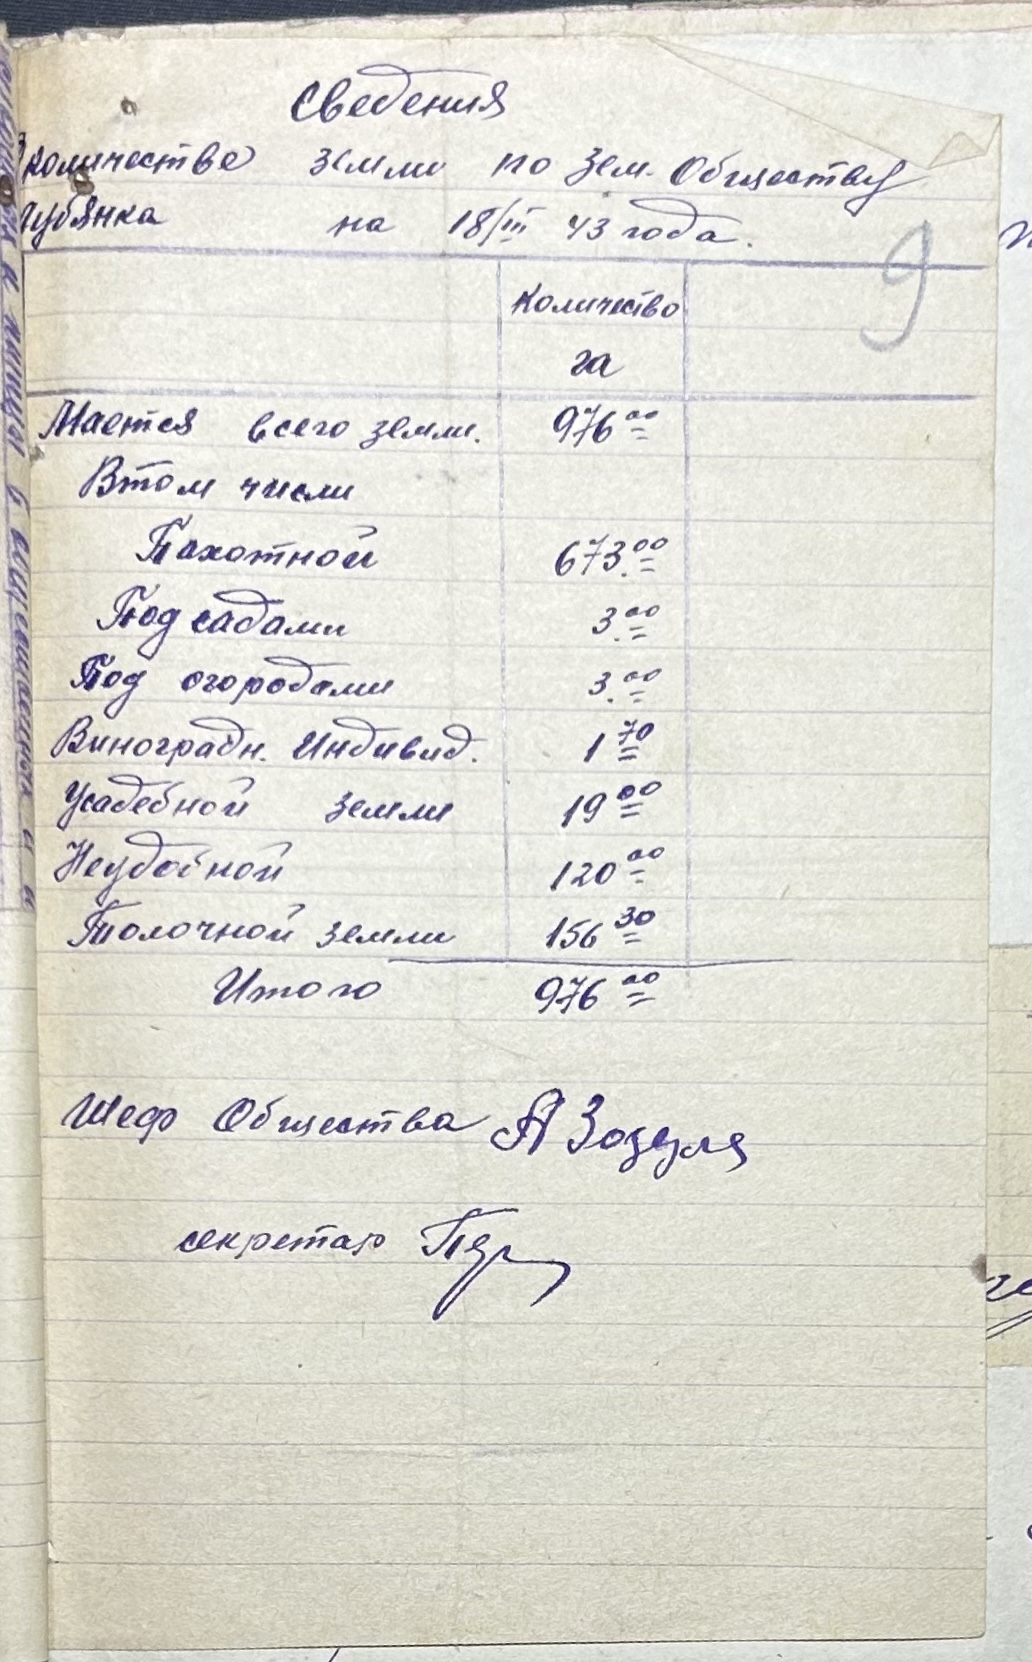 Сведения
количестве земли по зем. Обществу
на 18/III 43 года.
9
Количество
га
Мается всего земли. 976 00
Втом числи
Пахотной 673.00
Под садами 3.00
Под огородами 3.00
Виноградн. Индивид. 1 70
Усадебной земли 19 00
Неудобной 120 00
Толочной земли 156 30
Итого 976 00
Шеф Общества А Зозуля
секретар